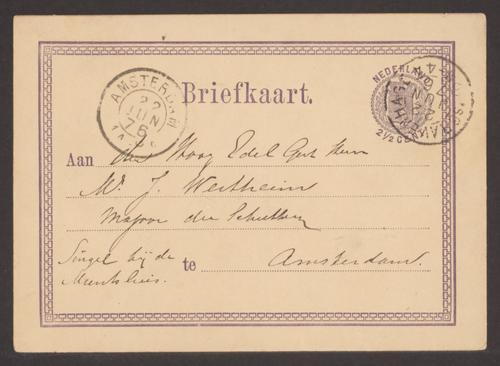 AMSTERDAM
22
JUN
75
Briefkaart.
NEDERLAND
2½ CENT
'S GRAVENHAGE
Aan den Hoog Edel Gest Heer
Mr. J. Wertheim
Majoor der Schutterij
Singel bij de
Munthuis.
te Amsterdam.